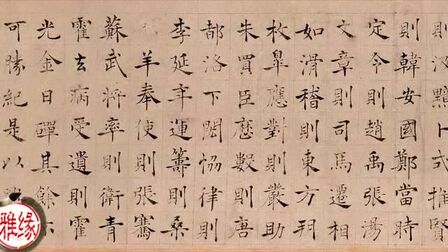 則汲黯卜式推賢
則韓安國鄭當時
定令則趙禹張湯
文章則司馬遷相
如滑稽則東方朔
枚皋應對則嚴助
朱買臣歷數則唐
都洛下閎協律則
李延年運籌則桑
羊奉使則張騫
蘇武將率則衛青
霍去病受遺則霍
光金日磾其餘
可勝紀是以
雅缘